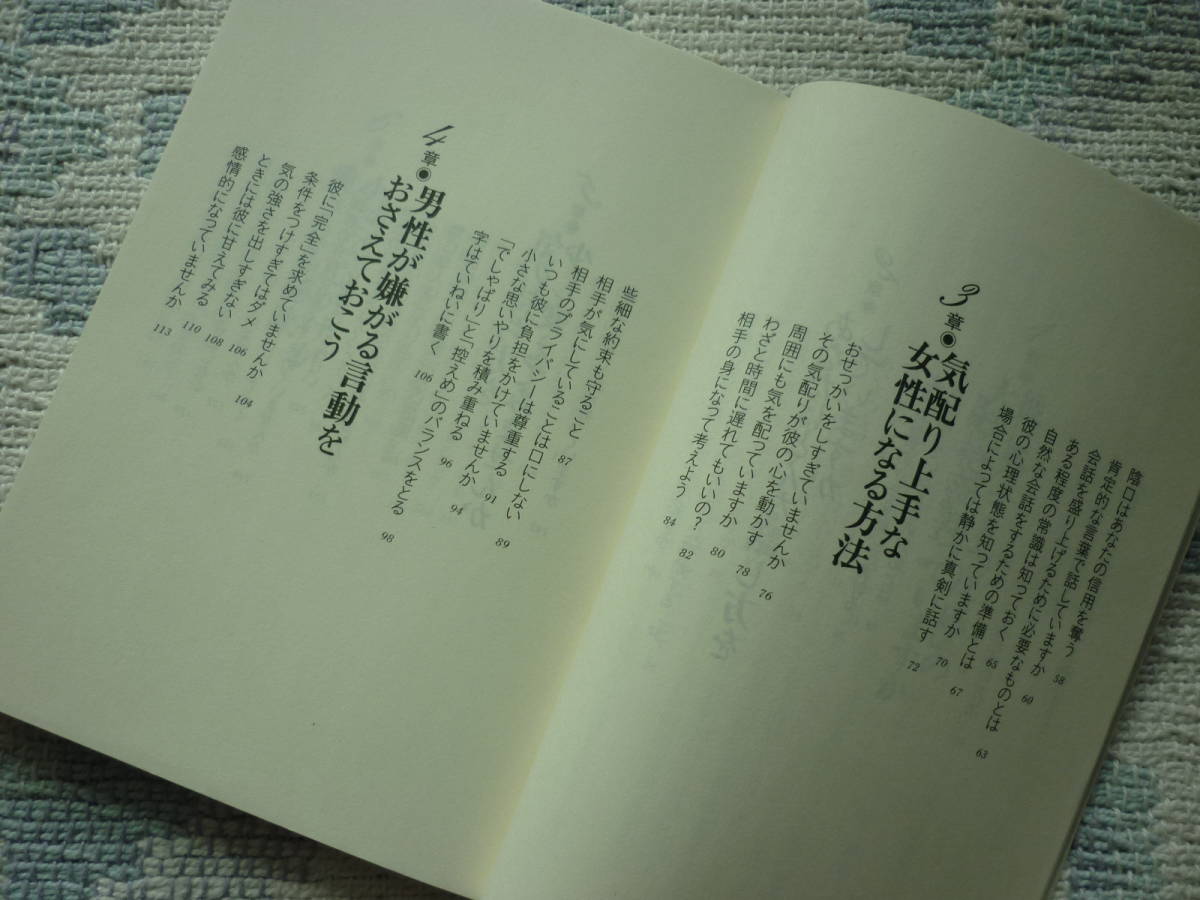 陰口はあなたの信用を奪う 58
肯定的な言葉で話していますか 60
会話を盛り上げるために必要なものとは 63
ある程度の常識は知っておく 65
自然な会話をするための準備とは 67
彼の心理状態を知っていますか 70
場合によっては静かに真剣に話す 72
3章●気配り上手な
女性になる方法
おせっかいをしすぎていませんか 76
その気配りが彼の心を動かす 78
周囲にも気を配っていますか 80
わざと時間に遅れてもいいの? 82
相手の身になって考えよう 84
些細な約束も守ること 87
相手が気にしていることは口にしない 89
相手のプライバシーは尊重する 91
いつも彼に負担をかけていませんか 94
小さな思いやりを積み重ねる 96
「でしゃばり」と「控えめ」のバランスをとる 98
字はていねいに書く 106
4章●男性が嫌がる言動を
おさえておこう
彼に「完全」を求めていませんか 104
条件をつけすぎてはダメ 106
気の強さを出しすぎない 108
ときには彼に甘えてみる 110
感情的になっていませんか 113